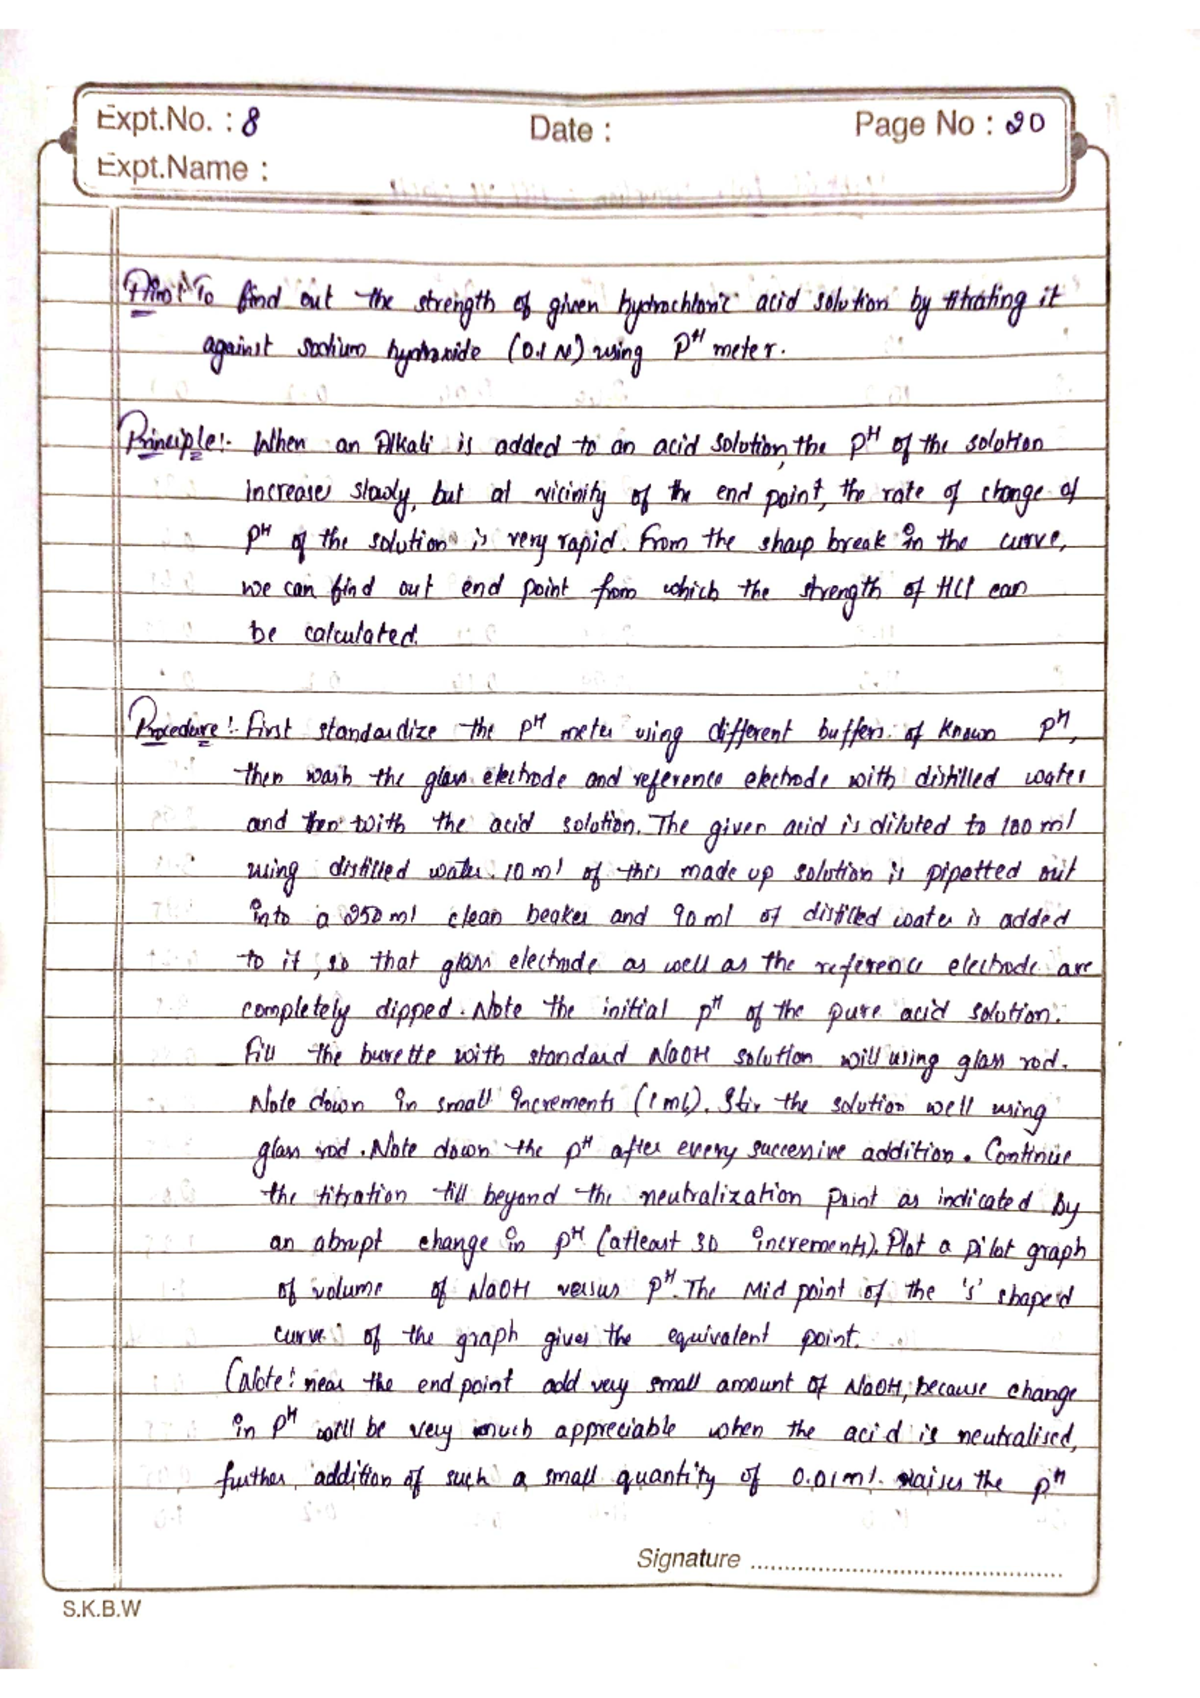 Expt.No. : 8
Date :
Page No : 20
Expt.Name :
Aim: To find out the strength of given hydrochloric acid solution by titrating it
against sodium hydroxide (0.1 N) using pH meter.
Principle:- When an Alkali is added to an acid solution, the pH of the solution
increases slowly, but at vicinity of the end point, the rate of change of
pH of the solution is very rapid. From the sharp break in the curve,
we can find out end point from which the strength of HCl can
be calculated.
Procedure:- First standardize the pH meter using different buffers of known pH,
then wash the glass electrode and reference electrode with distilled water
and then with the acid solution. The given acid is diluted to 100 ml
using distilled water. 10 ml of this made up solution is pipetted out
into a 250 ml clean beaker and 90 ml of distilled water is added
to it, so that glass electrode as well as the reference electrode are
completely dipped. Note the initial pH of the pure acid solution.
Fill the burette with standard NaOH solution will using glass rod.
Note down in small increments (1 mL). Stir the solution well using
glass rod. Note down the pH after every successive addition. Continue
the titration till beyond the neutralization point as indicated by
an abrupt change in pH (atleast 30 increments). Plot a pilot graph
of volume of NaOH versus pH. The Mid point of the 's' shaped
curve of the graph gives the equivalent point.
(Note: near the end point add very small amount of NaOH, because change
in pH will be very much appreciable when the acid is neutralised,
further addition of such a small quantity of 0.01 ml. raises the pH
Signature
S.K.B.W